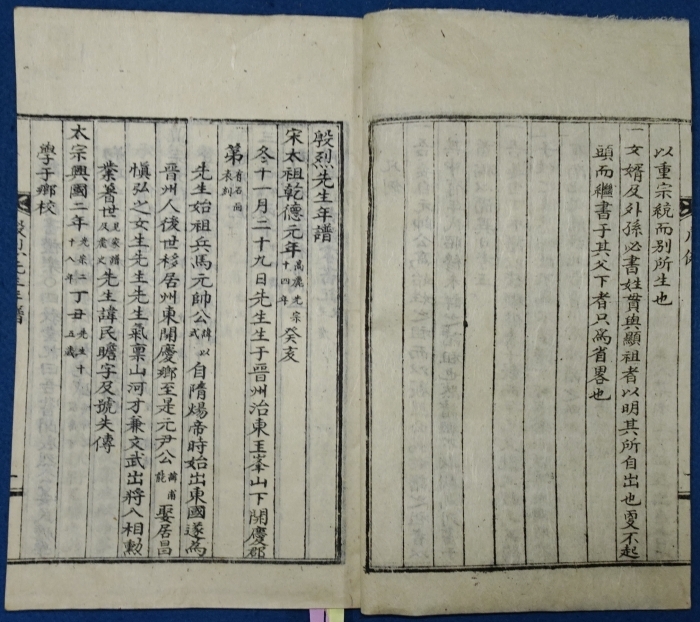 以重宗統而別所生也
一女婿及外孫必書姓貫與顯祖者以明其所自出也更不起
頭而繼書于其父下者只爲省畧也
殷烈先生年譜
宋太祖乾德元年高麗光宗十四年癸亥
冬十一月二十九日先生生于晋州治東玉峯山下開慶鄉
第有石面表刻
先生始祖兵馬元帥公諱以式自隋煬帝時始出東國遂爲
晉州人後世移居州東開慶鄉至是元尹公諱甫能娶居昌
愼弘之女生先生先生氣稟山河才兼文武出將入相勳
業著世見家譜及震史先生諱民瞻字及號失傳
太宗興國二年光宗二十八年丁丑先生十五歲
學于鄉校
殷烈先生年譜